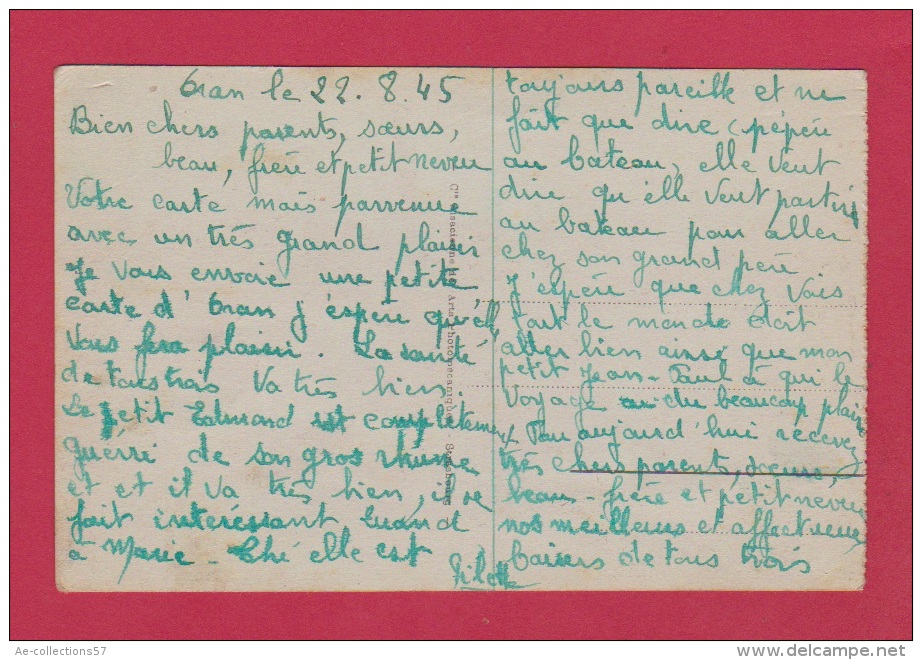 Oran le 22. 8. 45
Bien chers parents, sœurs,
beau, frère et petit neveu
Votre carte mais parvenue
avec un très grand plaisir
Je Vous envoie une petite
carte d'Oran j'espère qu'elle
Vous fera plaisir. La santé
de tous trois va très bien
Le petit Edmond est complètement
guérri de son gros rhume
et et il va très bien, il se
fait intéressant Quand
à Marie - Thé elle est
toujours pareille et ne
fait que dire (pépére
au bateau, elle veut
dire qu'elle veut partir
au bateau pour aller
chez son grand père
J'espère que chez Vous
tout le monde doit
aller bien ainsi que mon
petit Jean-Paul à qui le
Voyage du beaucoup plaire
aujourd'hui recevez
très chers parents, sœurs,
beau-frère et petit neveu
nos meilleurs et affectueux
baisers de tous trois
Cie Alsacienne des Arts Photomécaniques - Strasbourg
Ae-collections57
www.delcampe.net